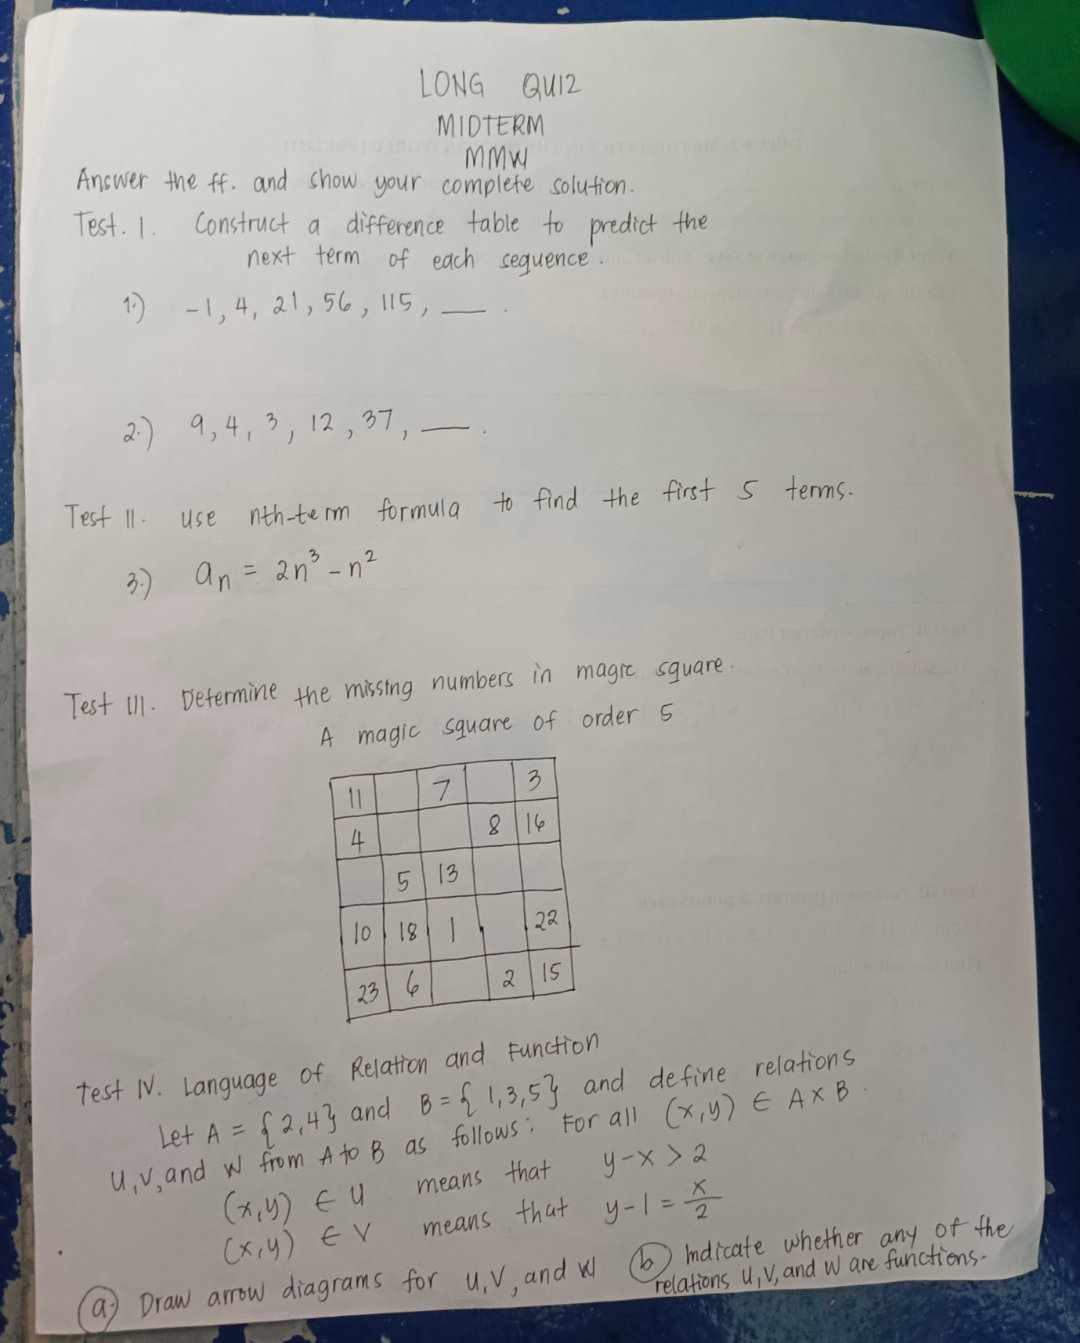 LONG QUIZ
MIDTERM
MMW
Answer the ff. and show your complete solution.
Test. I. Construct a difference table to predict the
next term of each sequence.
1.) -1, 4, 21, 56, 115, ___.
2.) 9, 4, 3, 12, 37, ___.
Test II. Use nth-term formula to find the first 5 terms.
3.) aₙ = 2n³ - n²
Test III. Determine the missing numbers in magic square.
A magic square of order 5
11 7 3
4 8 16
5 13
10 18 1 22
23 6 2 15
Test IV. Language of Relation and Function
Let A = {2,4} and B = {1,3,5} and define relations
U, V, and W from A to B as follows: For all (x,y) ∈ A × B.
(x,y) ∈ U means that y-x > 2
(x,y) ∈ V means that y-1 = x/2
a.) Draw arrow diagrams for U, V, and W
b) Indicate whether any of the
relations U, V, and W are functions.